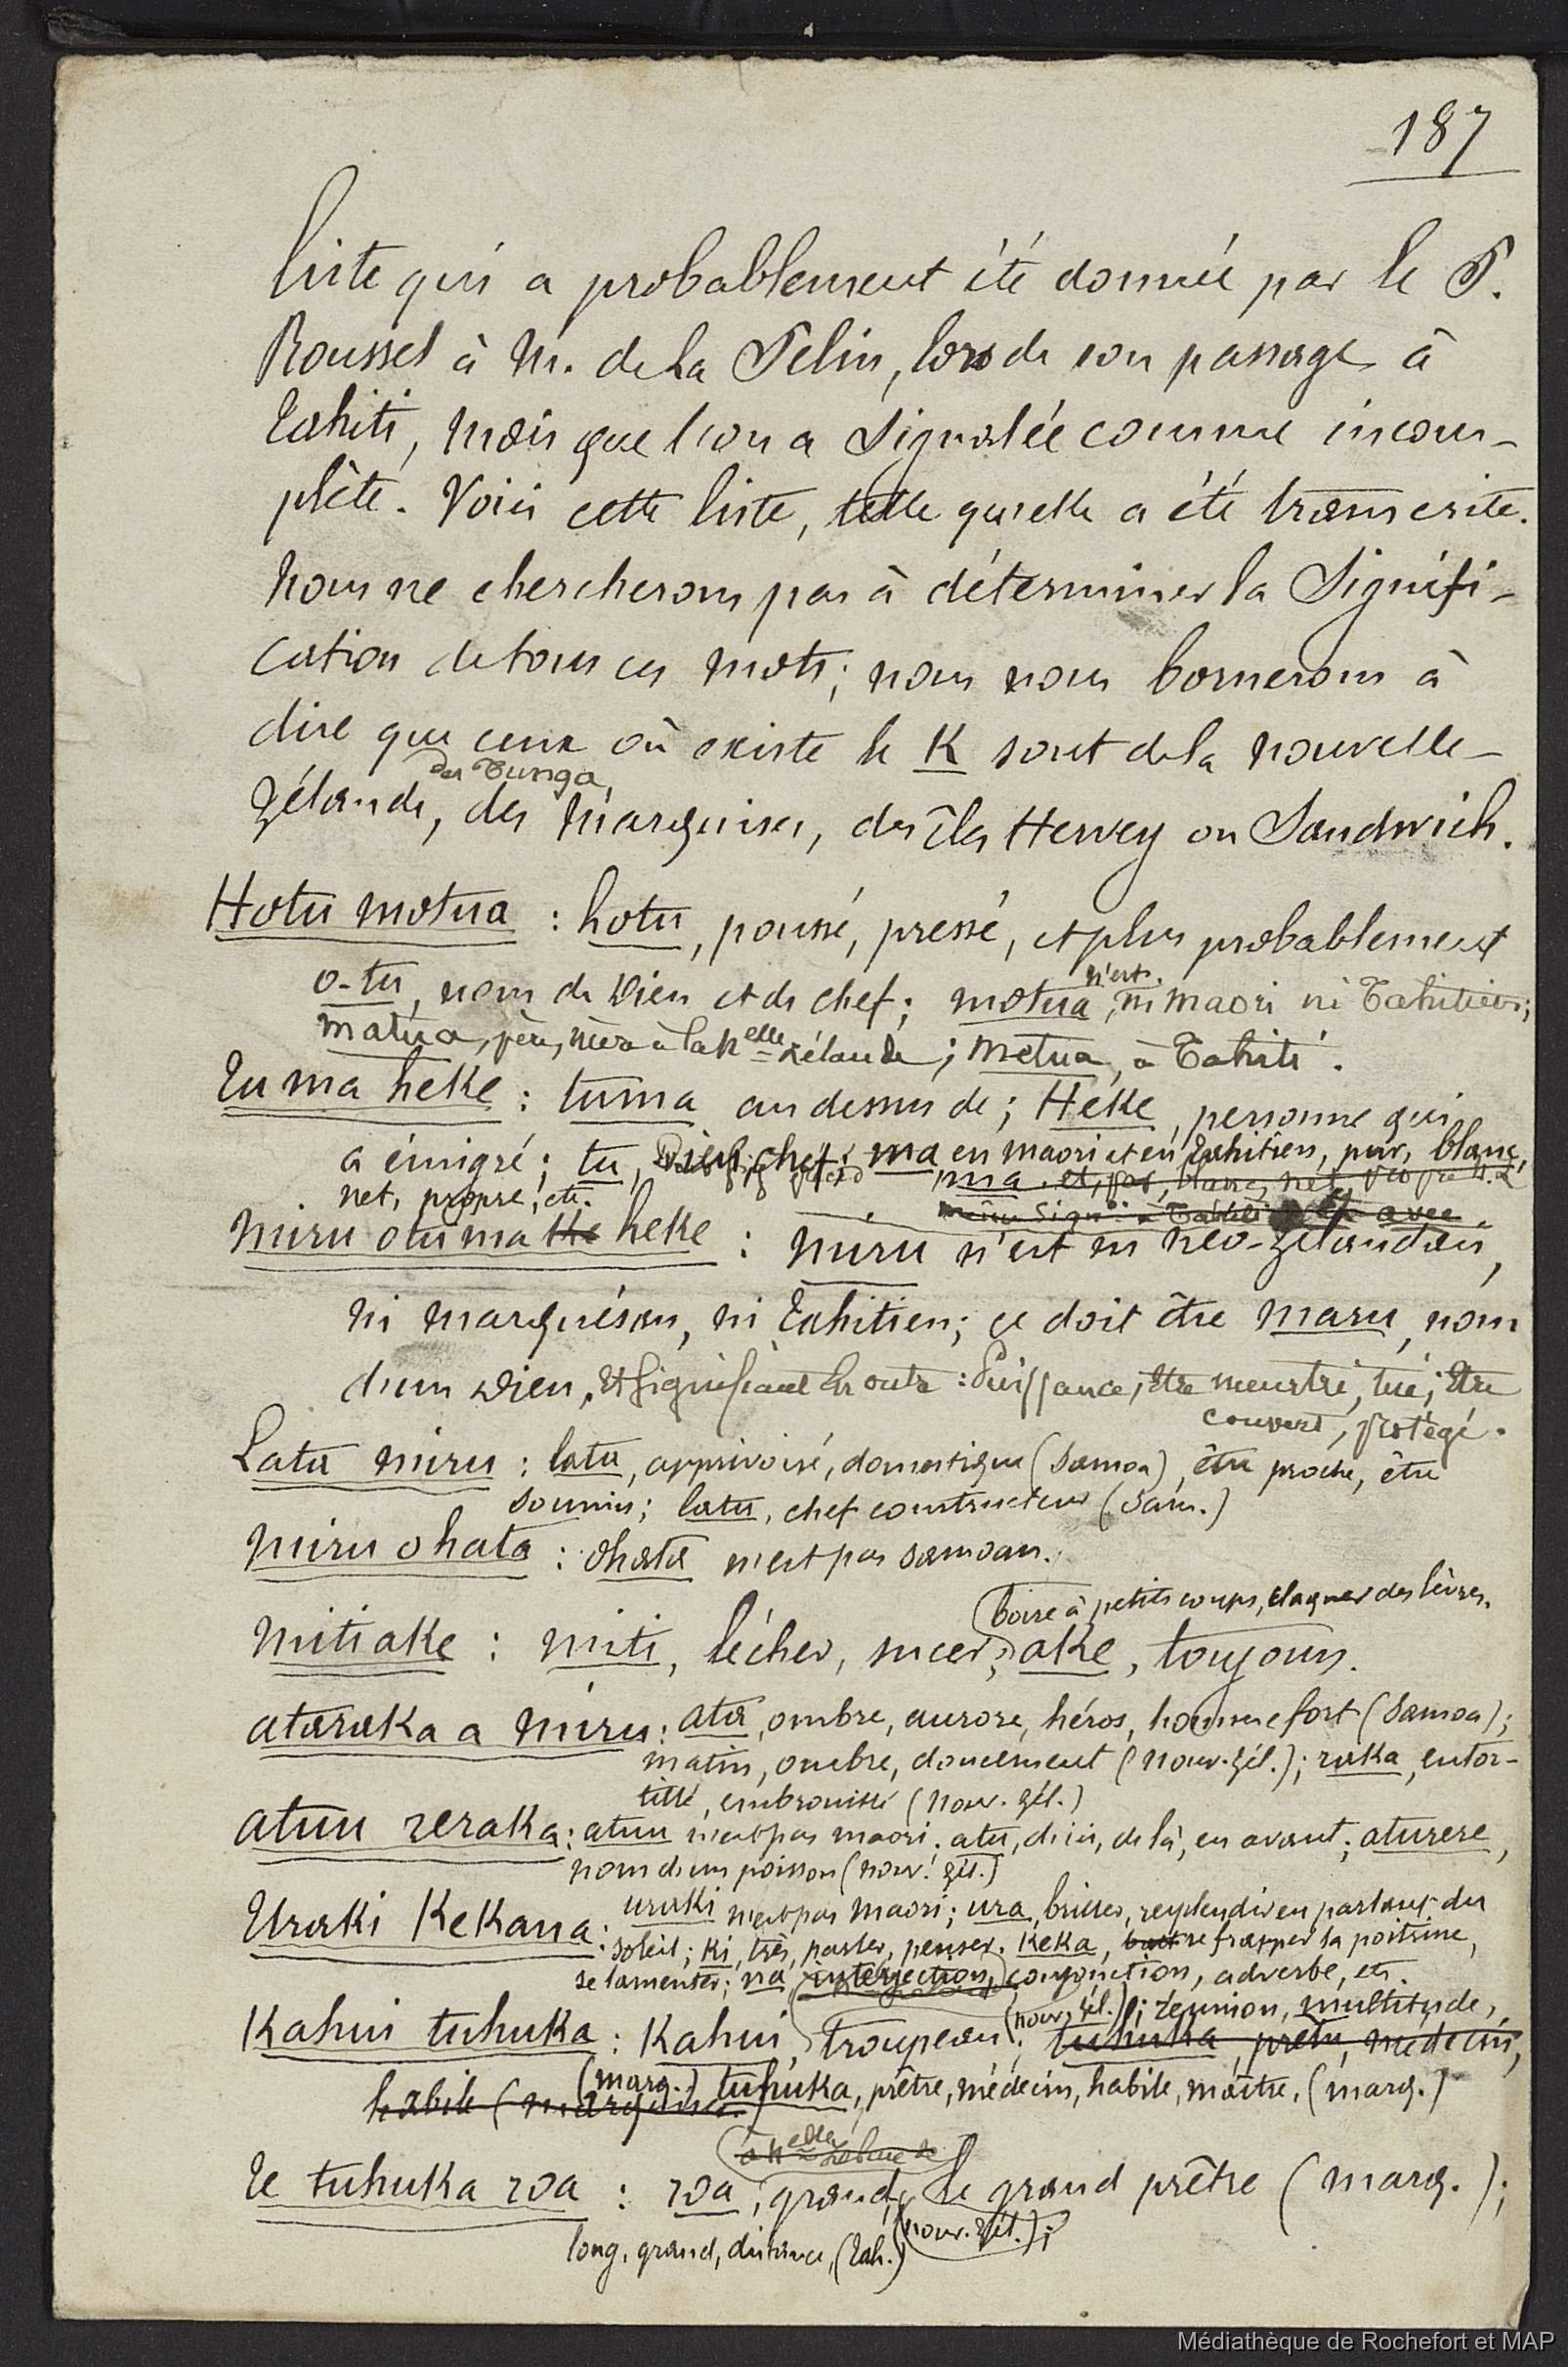 187
liste qui a probablement été donnée par le P.
Roussel à M. de La Pelin, lors de son passage à
Tahiti, mais que l'on a signalée comme incom-
plète. Voici cette liste, telle qu'elle a été transcrite.
Nous ne chercherons pas à déterminer la signifi-
cation de tous ces mots; nous nous bornerons à
dire que ceux où existe le K sont de la nouvelle-
des Tunga,
Zélande, des Marquises, des îles Hervey ou Sandwich.
Hotu motua : hotu, poussé, pressé, et plus probablement
n'est
o-tu, nom de Dieu et de chef; motua, ni maori ni Tahitien;
matua, père, mère à la Nelle Zélande; metua, à Tahiti.
Tu ma heke : tuma au dessus de; Heke, personne qui
a émigré; tu, Dieu, chef; ma en maori et en Tahitien, pur, blanc,
net, propre, etc.
Miru otuma heke : miru n'est ni néo-zélandais,
ni marquésan, ni Tahitien; ce doit être maru, nom
d'un Dieu, et signifiant en outre : Puissance; être meurtri, tué; être
couvert, protégé.
Lata miru : lata, apprivoisé, domestique (Samoa), être proche, être
soumis; latu, chef constructeur (Sam.)
Miru ohata : ohata n'est pas samoan.
boire à petits coups, claquer des lèvres.
Mitiake : miti, lécher, sucer, ake, toujours.
ataraka a miru : ata, ombre, aurore, héros, homme fort (Samoa);
matin, ombre, doucement (nouv. zél.); raka, entor-
tillé, embrouillé (nouv. zél.)
atuu reraka : atuu n'est pas maori; atu, d'ici, de là, en avant; aturere,
nom d'un poisson (nouv. zél.)
Uraki Kekana : uraki n'est pas maori; ura, briller, resplendir en parlant du
soleil; ki, très, parler, penser. keka, se frapper la poitrine,
se lamenter; na interjection, conjonction, adverbe, etc.
(nouv. zél.); réunion, multitude,
Kahui tuhuka : Kahui, troupeau; tuhuka, prêtre, médecin,
habile (marquises) (marq.) tuhuka, prêtre, médecin, habile, maître, (marq.)
à Nelle Zélande
Te tuhuka roa : roa, grand, le grand prêtre (marq.);
(nouv. zél.);
long, grand, distance, (Tah.)
Médiathèque de Rochefort et MAP